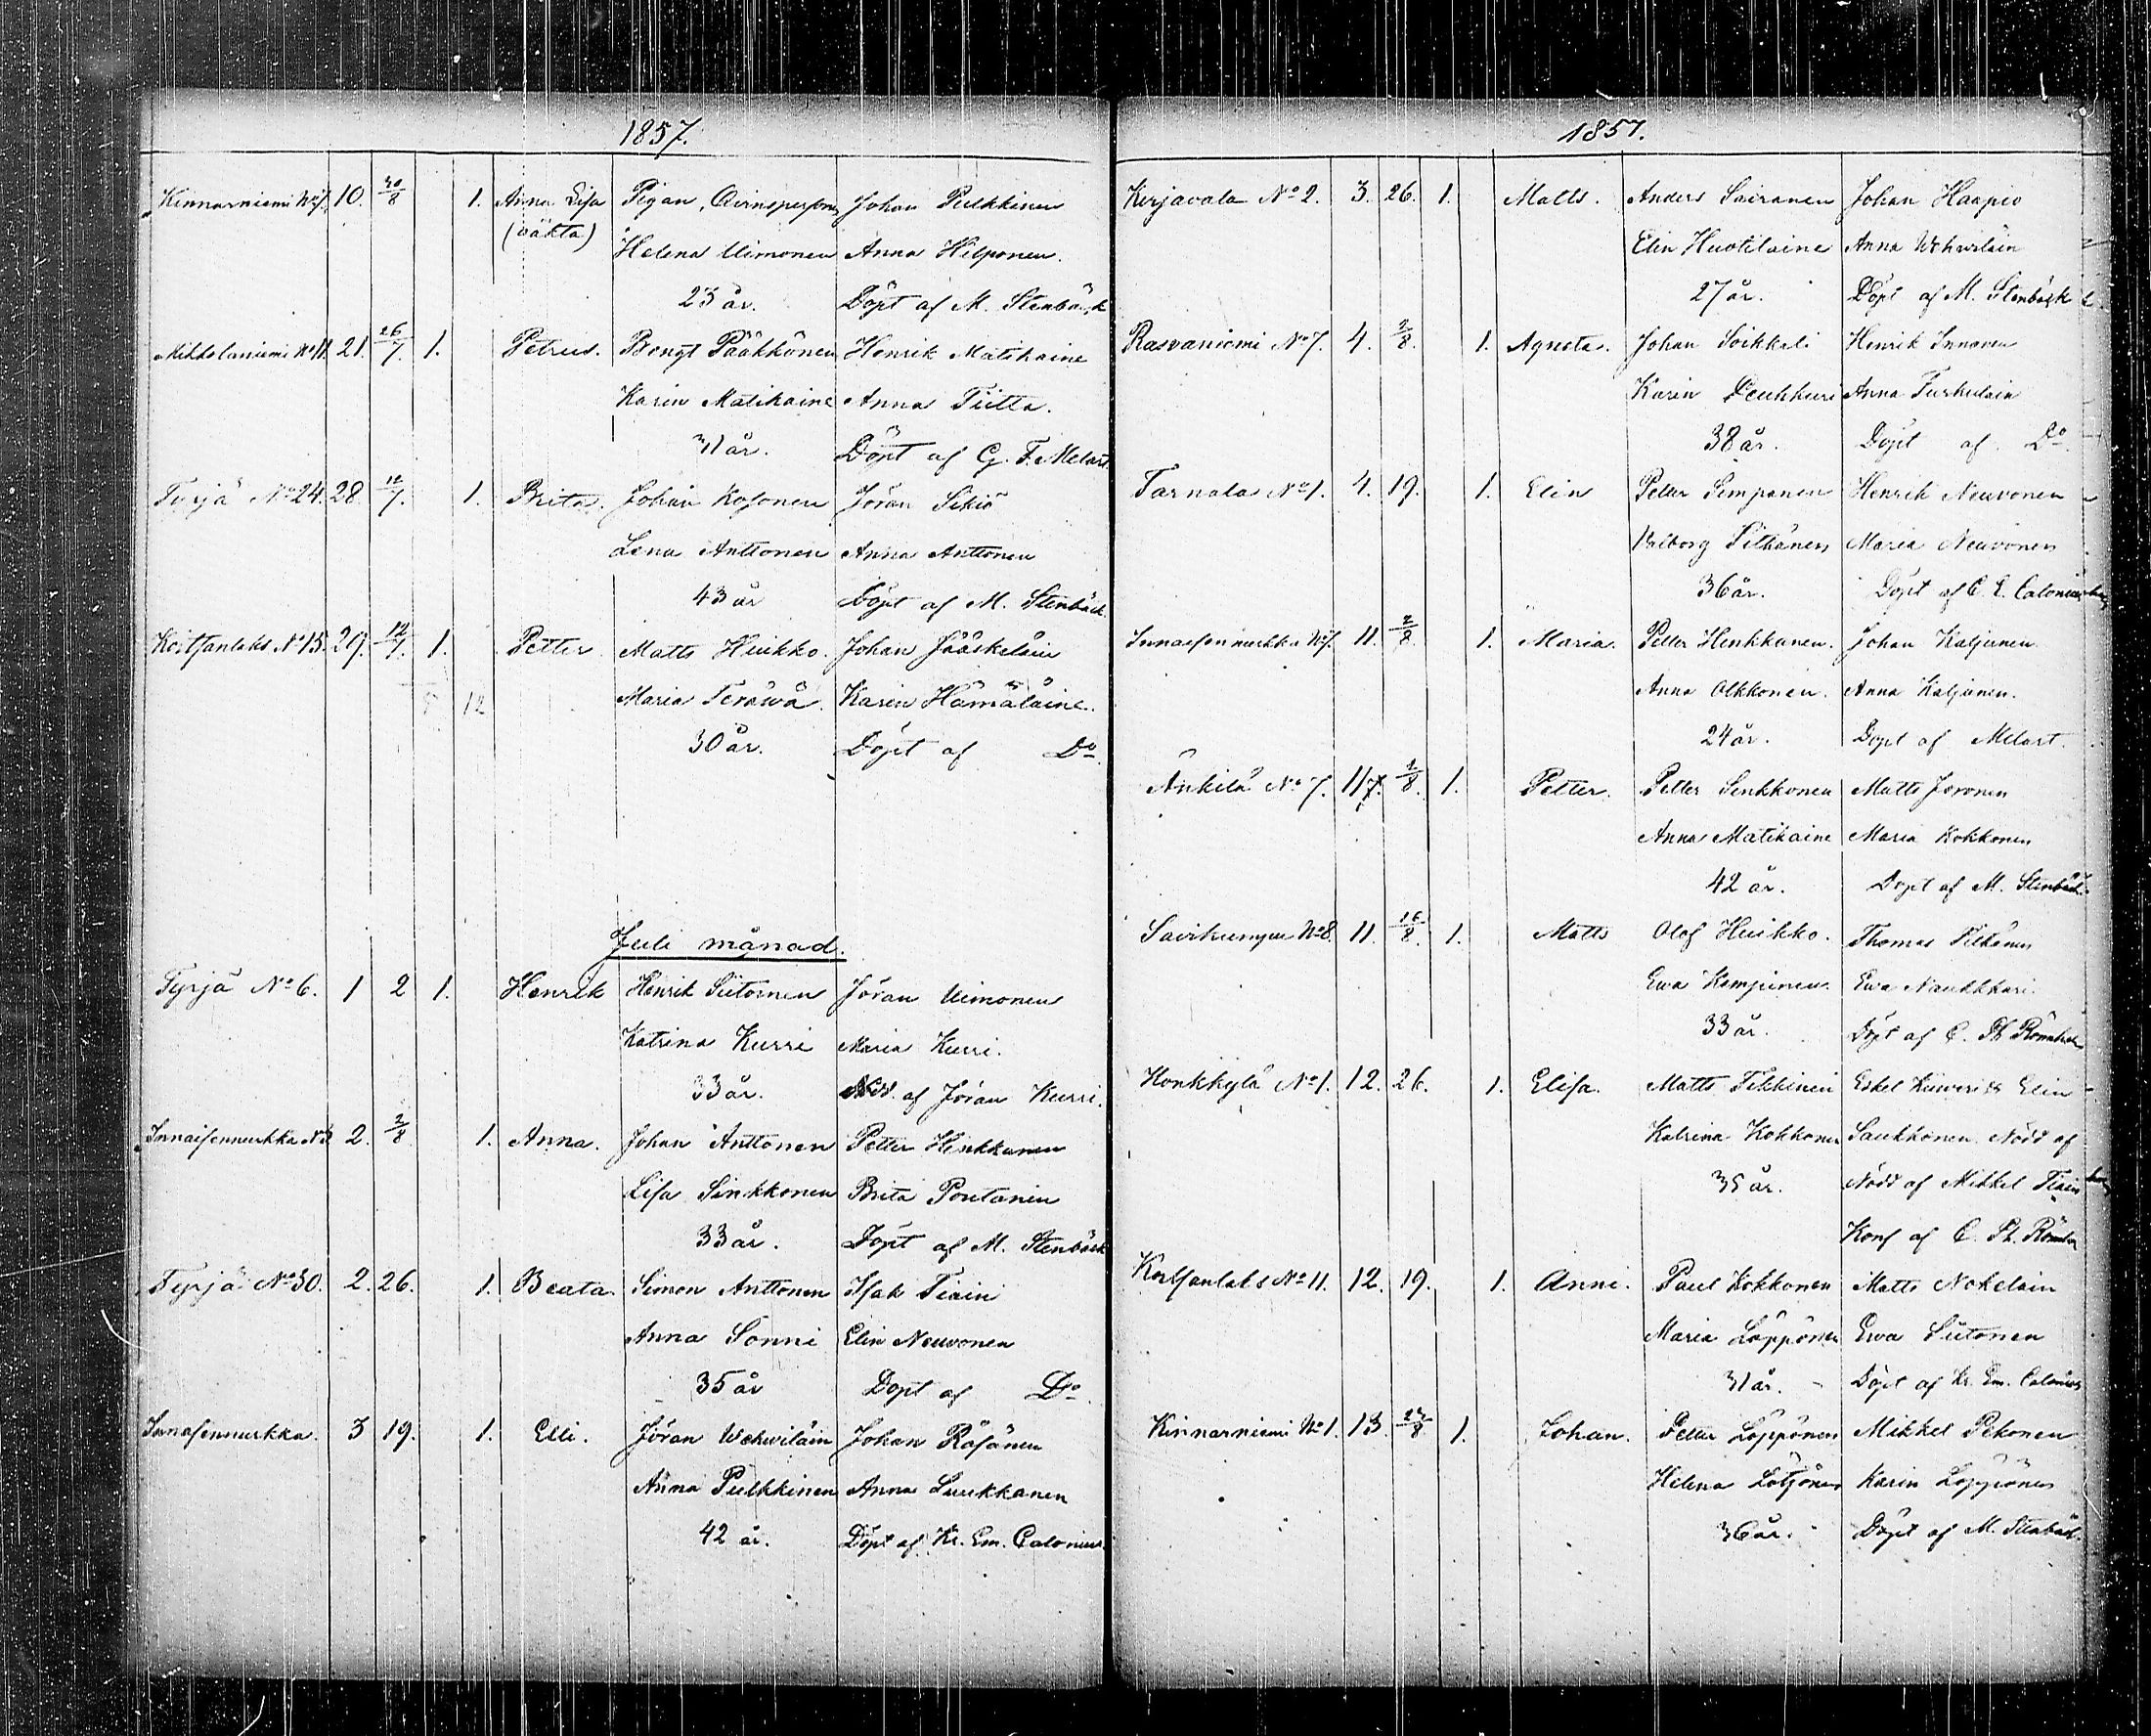 1857.
Kinnarniemi No 7. 10. 30/8 1. Anna Lisa Pigan, Johan Pulkkinen
(oäkta) Helena Uimonen Anna Hilponen.
23 år. Döpt af M. Stenbäck
Mikkolaniemi No 11. 21. 26/7. 1. Petrus. Bengt Pääkkönen Henrik Matikaine
Karin Matikaine Anna Tiitta.
31 år. Döpt af G. F. Melart
Tyrjä No 24. 28. 12/7. 1. Brita. Johan Kosonen Jöran Sikiö
Lena Anttonen Anna Anttonen
43 år Döpt af M. Stenbäck
Koitsanlaks No 15. 29. 12/7. 1. Petter Matts Huikko. Johan Jääskeläin
Maria Teräwä. Karin Hämäläine.
30 år. Döpt af Do.
Juli månad.
Tyrjä No 6. 1 2 1. Henrik Henrik Siitoinen Jöran Uimonen
Katrina Kurri Maria Kurri.
33 år. Nöd. af Jöran Kurri.
Innaisennurkka No 2. 2/8 1. Anna. Johan Anttonen Petter Henkkunen
Lisa Sinkkonen Brita Poutanin
33 år. Döpt af M. Stenbäck
Tyrjä No 30. 2. 26. 1. Beata. Simon Anttonen Isak Tiain
Anna Sonni Elin Neuvonen
35 år Döpt af Do
Innasennurkka. 3 19. 1. Elli. Jöran Wehviläin Johan Räsänen
Anna Pulkkinen Anna Luukkanen
42 år. Döpt af Kr. Em. Calonius.
1857.
Kirjavala No 2. 3. 26. 1. Matts. Anders Sairanen Johan Haapio
Elin Huotilaine Anna Wehwiläin
27 år. Döpt af M. Stenbäck
Rasvaniemi No 7. 4. 2/8. 1. Agneta. Johan Soikkeli Henrik Innanen
Karin Peuhkuri Anna Turkulain
38 år. Döpt af Do
Tarnala No 1. 4. 19. 1. Elin Petter Simpanen Henrik Neuvonen
Valborg Pitkänen Maria Neuvonen
36 år. Döpt af C. E. Calonius
Innaisennurkka No 7. 11. 2/8. 1. Maria. Petter Henkkunen. Johan Kaljunen
Anna Olkkonen. Anna Kaljunen.
24 år. Döpt af Melart.
Änkilä No 7. 11 2/8. 1. Petter. Petter Sinkkonen Matts Joronen
Anna Matikaine Maria Kokkonen
42 år. Döpt af M. Stenbäck.
Sairkumpu No 8. 11. 16/8. 1. Matts Olof Huikko. Thomas Pitkänen
Ewa Kompinen. Ewa Naukkari.
33 år. Döpt af C. Fr. Rönnholm
Honkkylä No 1. 12. 26. 1. Elisa. Matts Tikkinen Eskel Kuiweri & Elin
Katrina Kokkonen Saukkonen. Nöd af
35 år. Nöd af Mikkel Tiain
Konf af C. Fr.
Koitsanlaks No 11. 12. 19. 1. Anni. Paul Kokkonen Matts Nokelain
Maria Löppönen Ewa Siitonen
31 år. Döpt af Kr. Em. Calonius
Kinnarniemi No 1. 13. 23/8 1. Johan. Petter Löppönen Mikkel Pekonen
Helena Lötjönen Karin Löppönen
36 år. Döpt af M. Stenbäck.